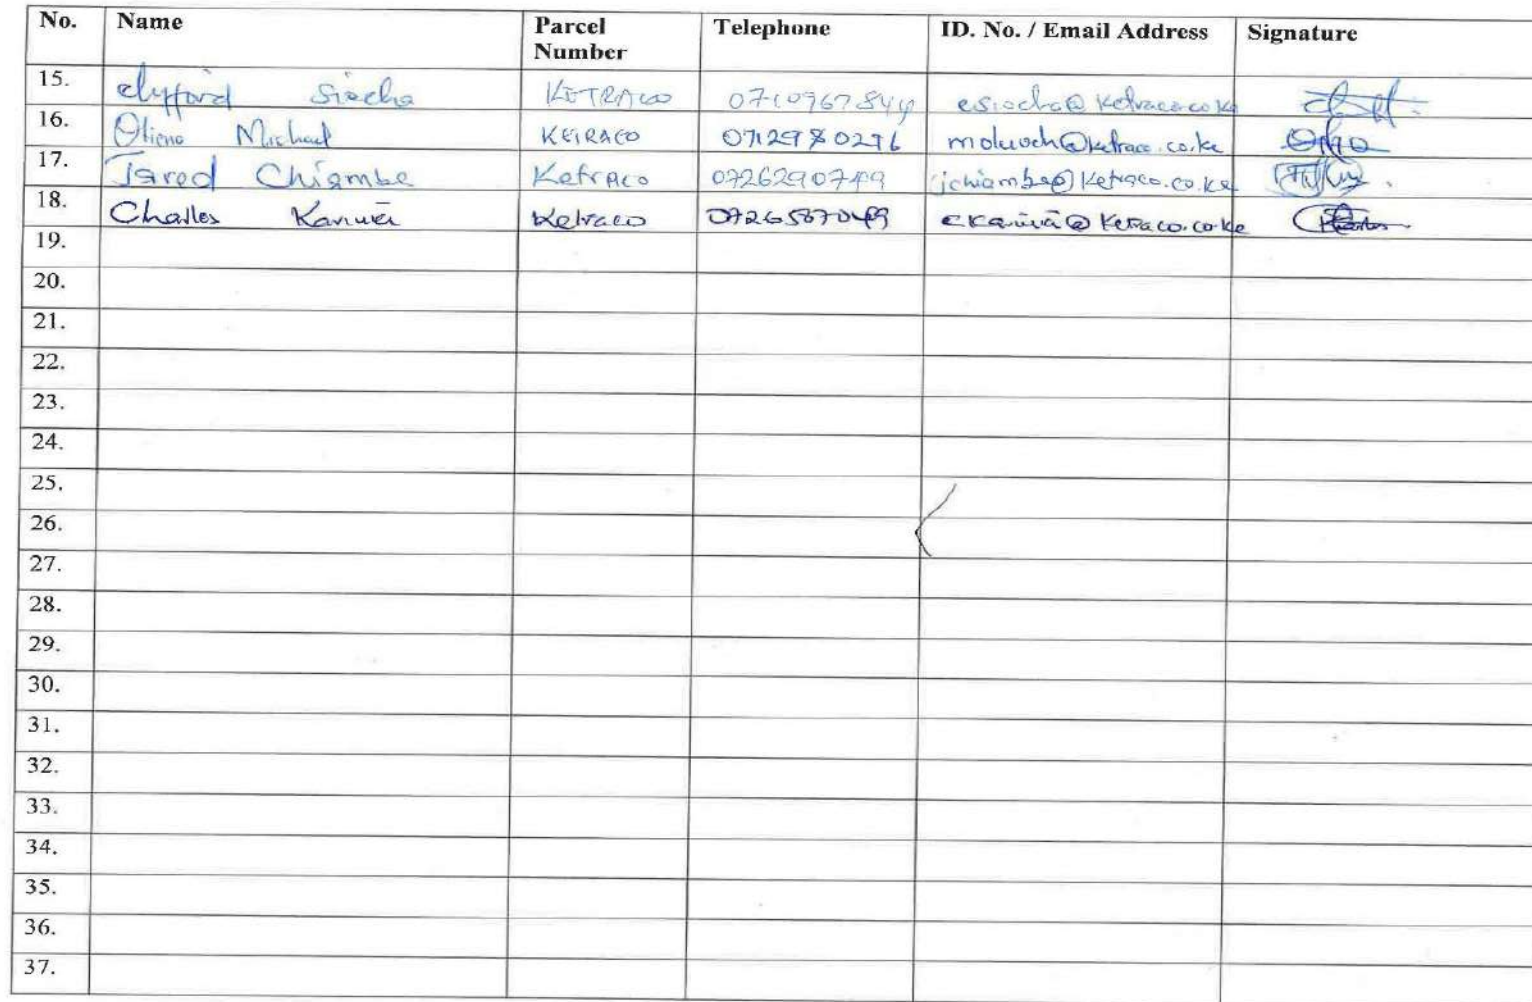 No. Name Parcel Number Telephone ID. No. / Email Address Signature
15. Clyfford Siocha KETRACO 0710967844
16. Otieno Michael KETRACO 0712980276 moluoch@ketraco.co.ke
17. Jared Chiambe Ketraco 0726290749 jchiambe@ketraco.co.ke
18. Charles Ketraco 0726587049 @ketraco.co.ke
19.
20.
21.
22.
23.
24.
25.
26.
27.
28.
29.
30.
31.
32.
33.
34.
35.
36.
37.